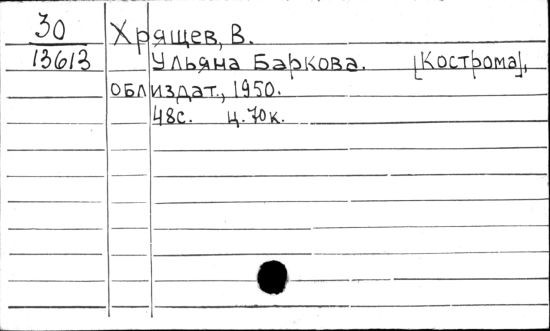 30 Хрящев, В.
13613 Ульяна Баркова. [Кострома],
облиздат., 1950.
48с. ц. 70к.